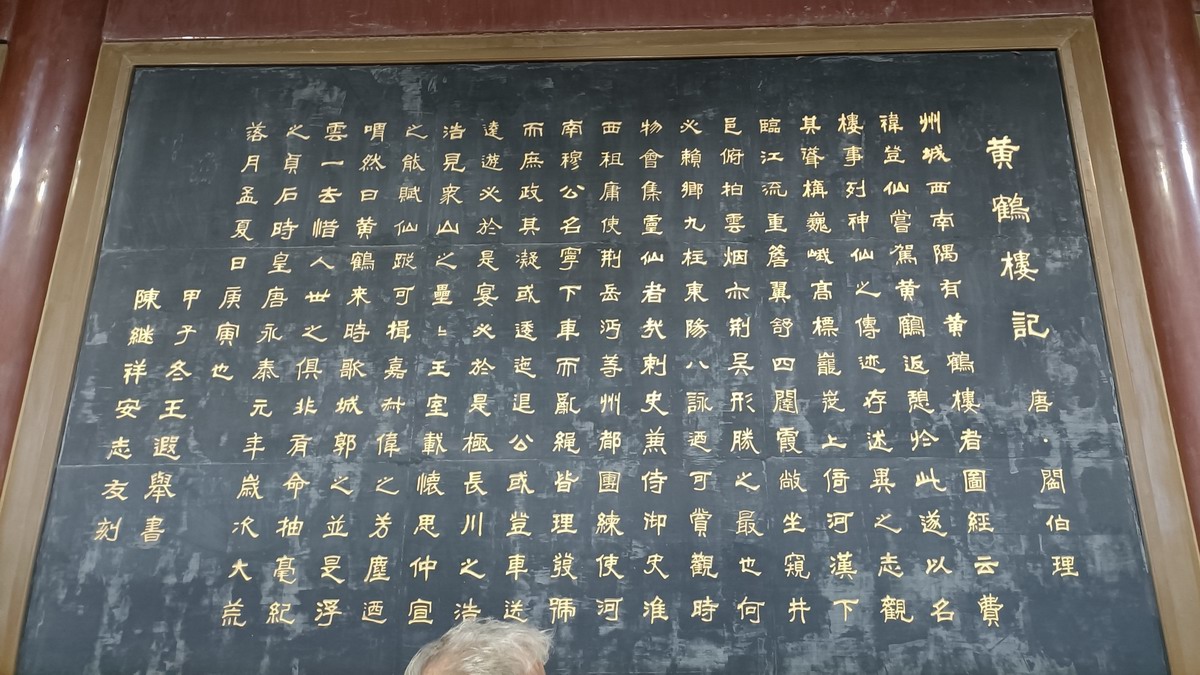 黄鶴樓記
唐·閻伯理
州城西南隅有黄鶴樓者圖經云費
禕登仙嘗駕黄鶴返憩於此遂以名
樓事列神仙之傳迹存述異之志觀
其聳構巍峨髙標巃嵸上倚河漢下
臨江流重簷翼舒四闥霞敞坐窺井
邑俯拍雲烟亦荆吴形勝之最也何
必賴鄉九柱東陽八詠廼可賞觀時
物會集靈仙者哉刺史兼侍御史淮
西租庸使荆岳沔等州都團練使河
南穆公名寧下車而亂繩皆理發號
而庶政其凝或逶迤退公或登車送
遠遊必於是宴必於是極長川之浩
浩見衆山之壘〻王室載懷思仲宣
之能賦仙蹤可揖嘉叔偉之芳塵廼
喟然曰黄鶴來時歌城郭之並是浮
雲一去惜人世之俱非有命抽毫紀
之貞石時皇唐永泰元年歲次大荒
落月孟夏日庚寅也
甲子冬王遐舉書
陳継祥安志友刻